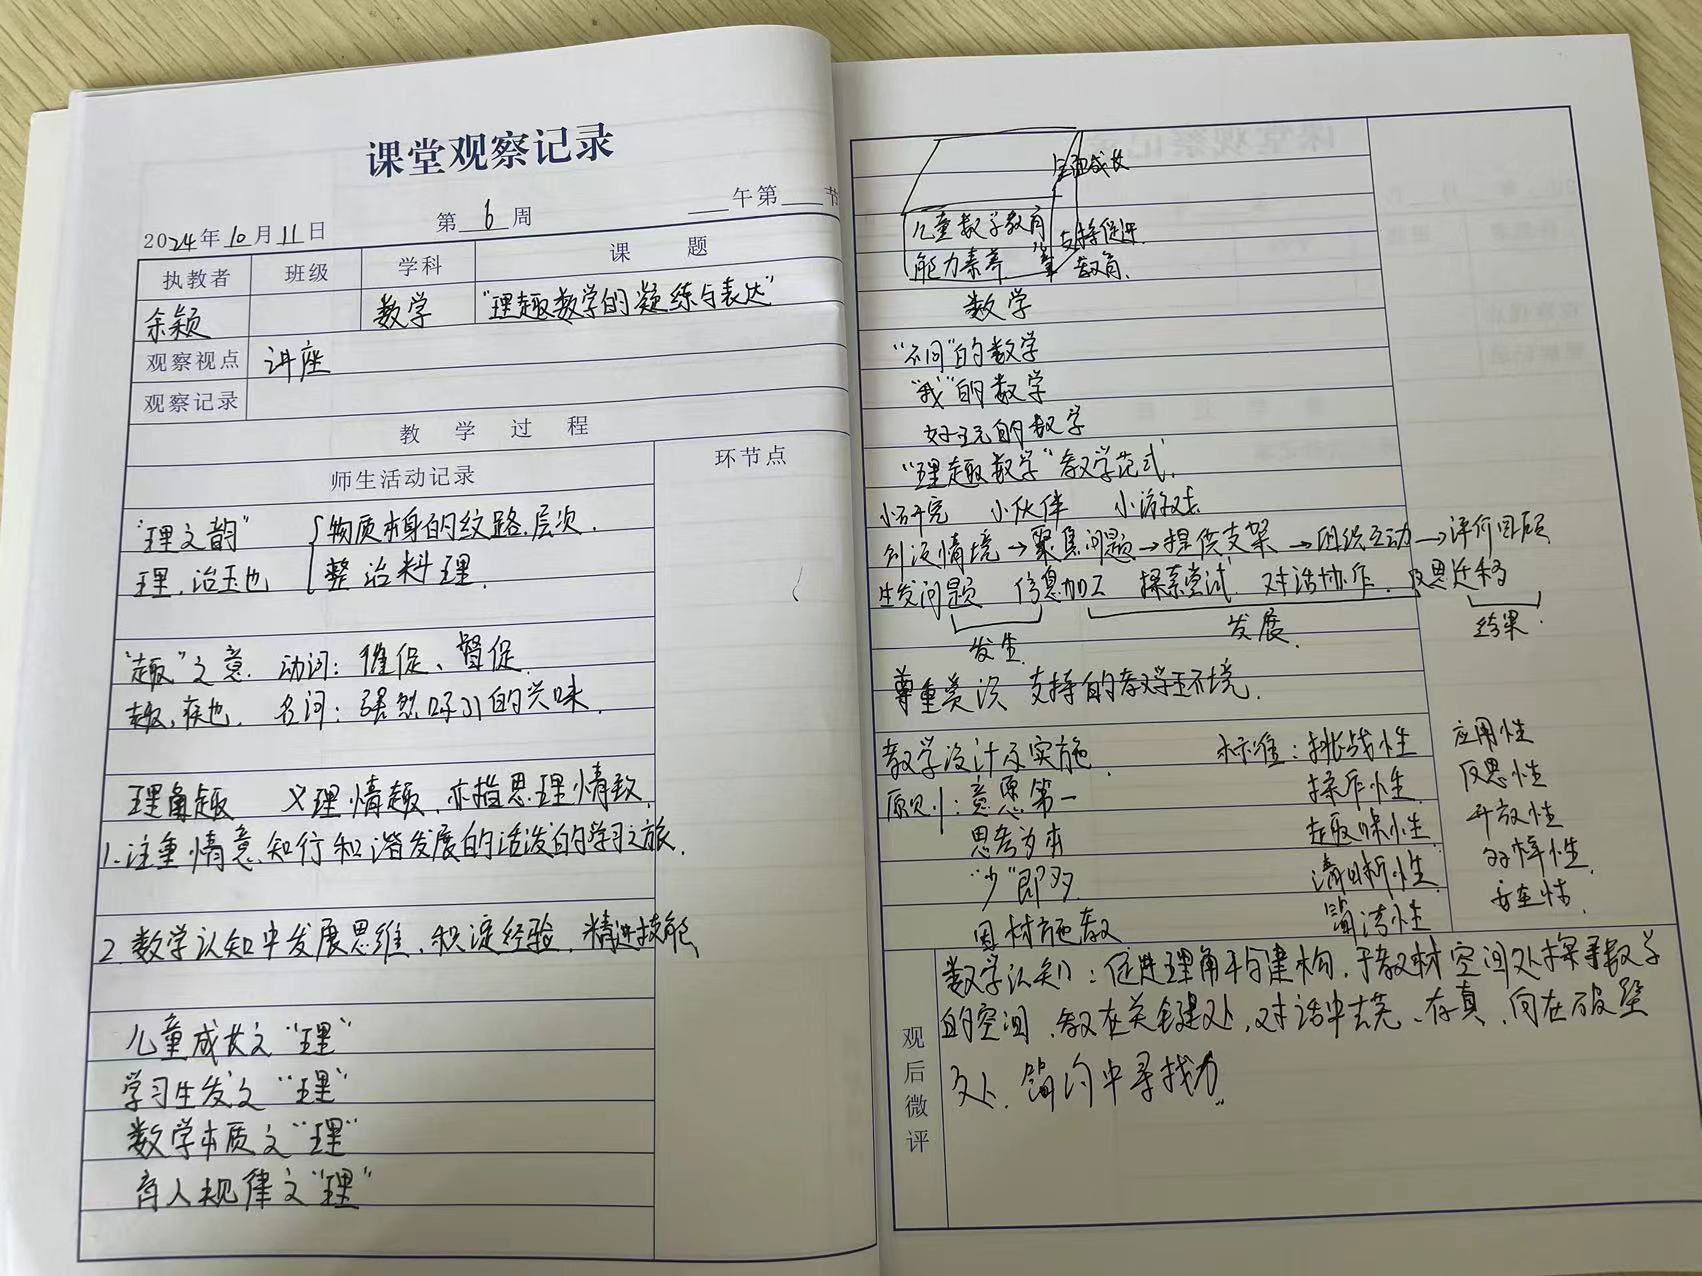 课堂观察记录
2024年10月11日 第6周 午第 节
执教者 班级 学科 课题
余颖 数学 "理趣数学的凝练与表达"
观察视点 讲座
观察记录
教学过程
师生活动记录 环节点
"理之韵" 物质本身的纹路、层次.
理,治玉也 整治料理.
"趣"之意 动词:催促、督促.
趣,疾也. 名词:强烈吸引的兴味.
理解趣 义理情趣,亦指思理情致.
1.注重情意、知行和谐发展的活泼的学习之旅.
2 数学认知中发展思维、积淀经验、精进技能
儿童成长之"理"
学习生发之"理"
数学本质之"理"
育人规律之"理"
全面成长
儿童数学教育 支持促进
能力素养 教育.
数学
"不同"的数学
"我"的数学
好玩的数学
"理趣数学"教学范式.
小研究 小伙伴 小游戏
创设情境→聚焦问题→提供支架→组织互动→评价回顾
生发问题 信息加工 探索尝试 对话协作. 反思迁移
发生. 发展. 结果.
尊重赏识 支持的教学环境.
教学设计及实施. 标准:挑战性 应用性
原则:意愿第一 操作性. 反思性
思考为本 趣味性. 开放性
"少"即多 清晰性.
因材施教 简洁性 安全性.
观后微评
数学认知:促进理解与建构,于教材空间处探寻数学
的空间,教在关键处,对话中去芜、存真,问在
之处,简约中寻找力.